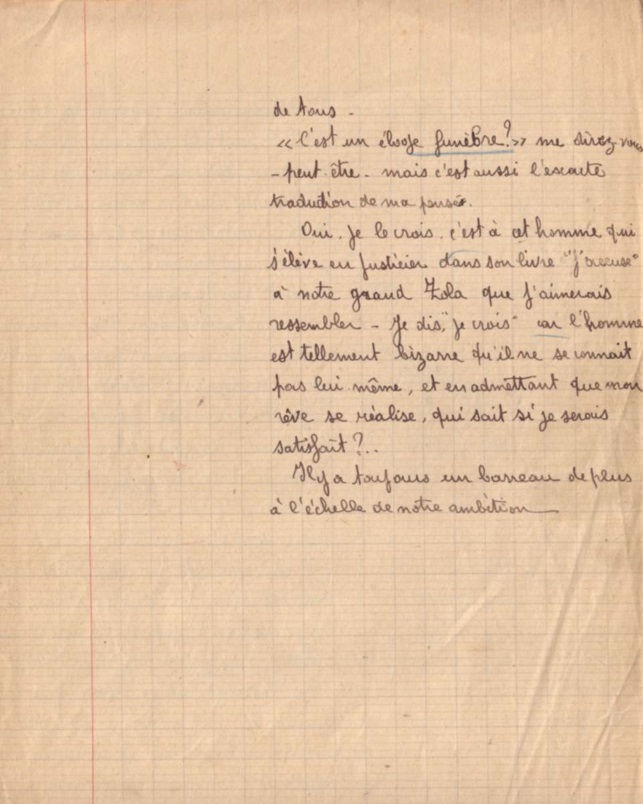 de tous -
« C'est un éloge funèbre? » me direz vous
- peut être - mais c'est aussi l'exacte
traduction de ma pensée.
Oui. Je le crois. c'est à cet homme qui
s'élève en Justicier dans son livre "J'accuse"
à notre grand Zola que j'aimerais
ressembler - Je dis, "je crois" car l'homme
est tellement bizarre qu'il ne se connait
pas lui même, et en admettant que mon
rêve se réalise, qui sait si je serais
satisfait?..
Il y a toujours un barreau de plus
à l'échelle de notre ambition